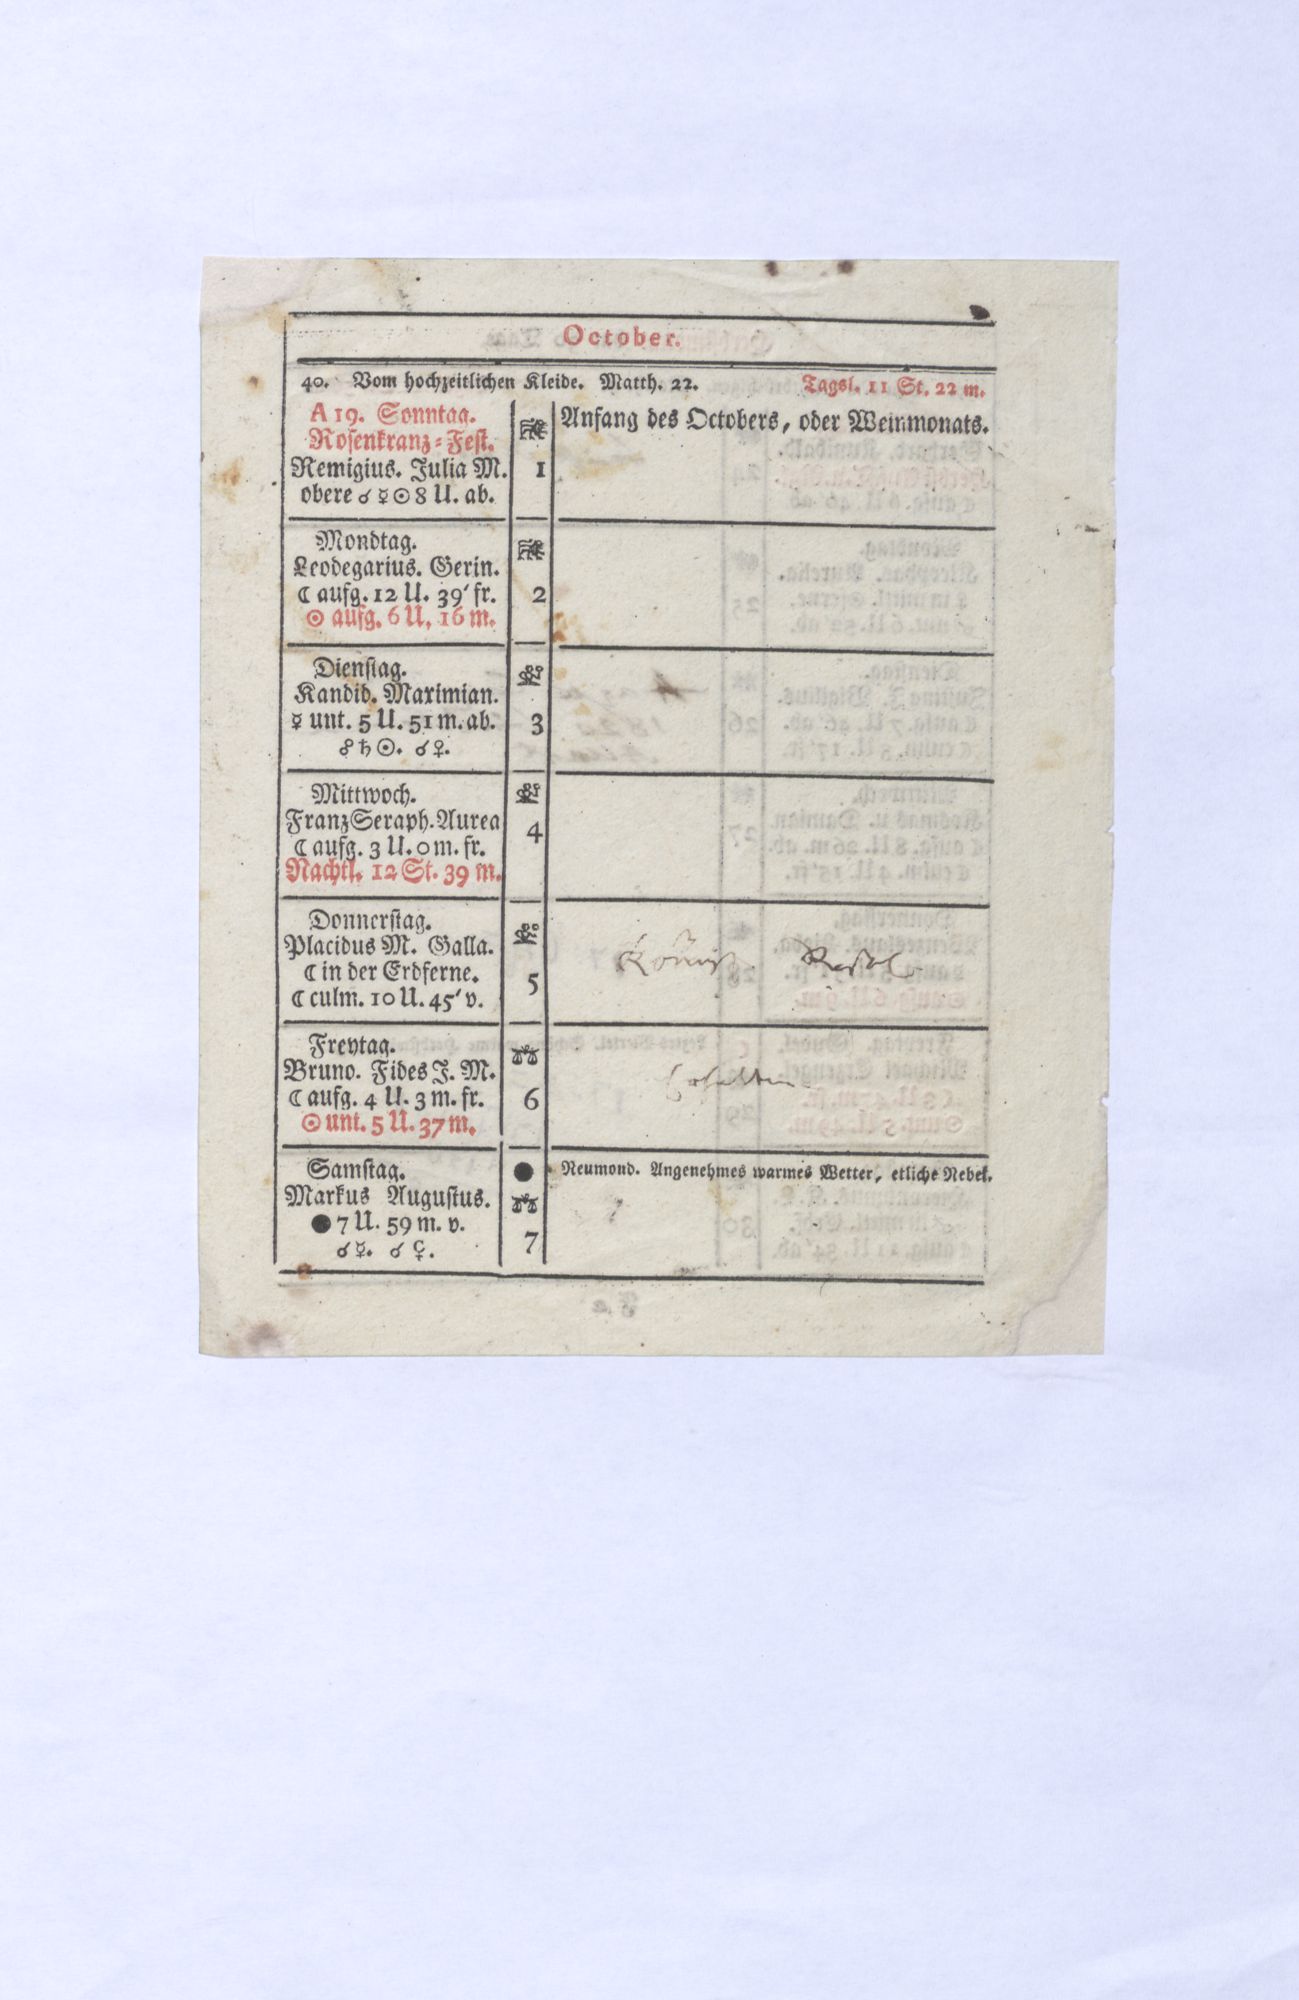 October.
40. Vom hochzeitlichen Kleide. Matth. 22. Tagsl. 11 St. 22 m.
A 19. Sonntag.
Rosenkranz=Fest.
Remigius. Julia M. 1
obere ☌ ☿ ☉ 8 U. ab.
Anfang des Octobers, oder Weinmonats.
Mondtag.
Leodegarius. Gerin.
☾ aufg. 12 U. 39′ fr. 2
☉ aufg. 6 U. 16 m.
Dienstag.
Kandid. Maximian.
☿ unt. 5 U. 51 m. ab. 3
☍ ♄ ☉. ☌ ♀.
Mittwoch.
Franz Seraph. Aurea 4
☾ aufg. 3 U. 0 m. fr.
Nachtl. 12 St. 39 m.
Donnerstag.
Placidus M. Galla.
☾ in der Erdferne. 5
☾ culm. 10 U. 45′ v.
Freytag.
Bruno. Fides J. M.
☾ aufg. 4 U. 3 m. fr. 6
☉ unt. 5 U. 37 m.
erhalten
Samstag.
Markus Augustus.
● 7 U. 59 m. v.
☌ ☿. ☌ ☿. 7
Neumond. Angenehmes warmes Wetter, etliche Nebel.